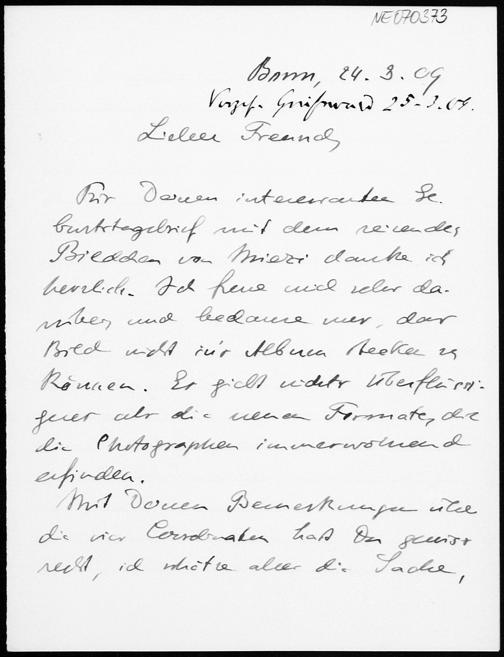 NE070373
Bonn, 24.3.09
Greifswald 25.3.09.
Lieber Freund,
Für Deinen interessanten Ge-
burtstagsbrief mit dem reizenden
Bildchen von Miezi danke ich
herzlich. Ich freue mich sehr da-
rüber und bedaure nur, das
Bild nicht in's Album stecken zu
können. Es giebt nichts Überflüssi-
geres als die neuen Formate, die
die Photographen immerwährend
erfinden.
Mit Deinen Bemerkungen über
die vier Coordinaten hast Du gewiss
recht, ich schätze aber die Sache,